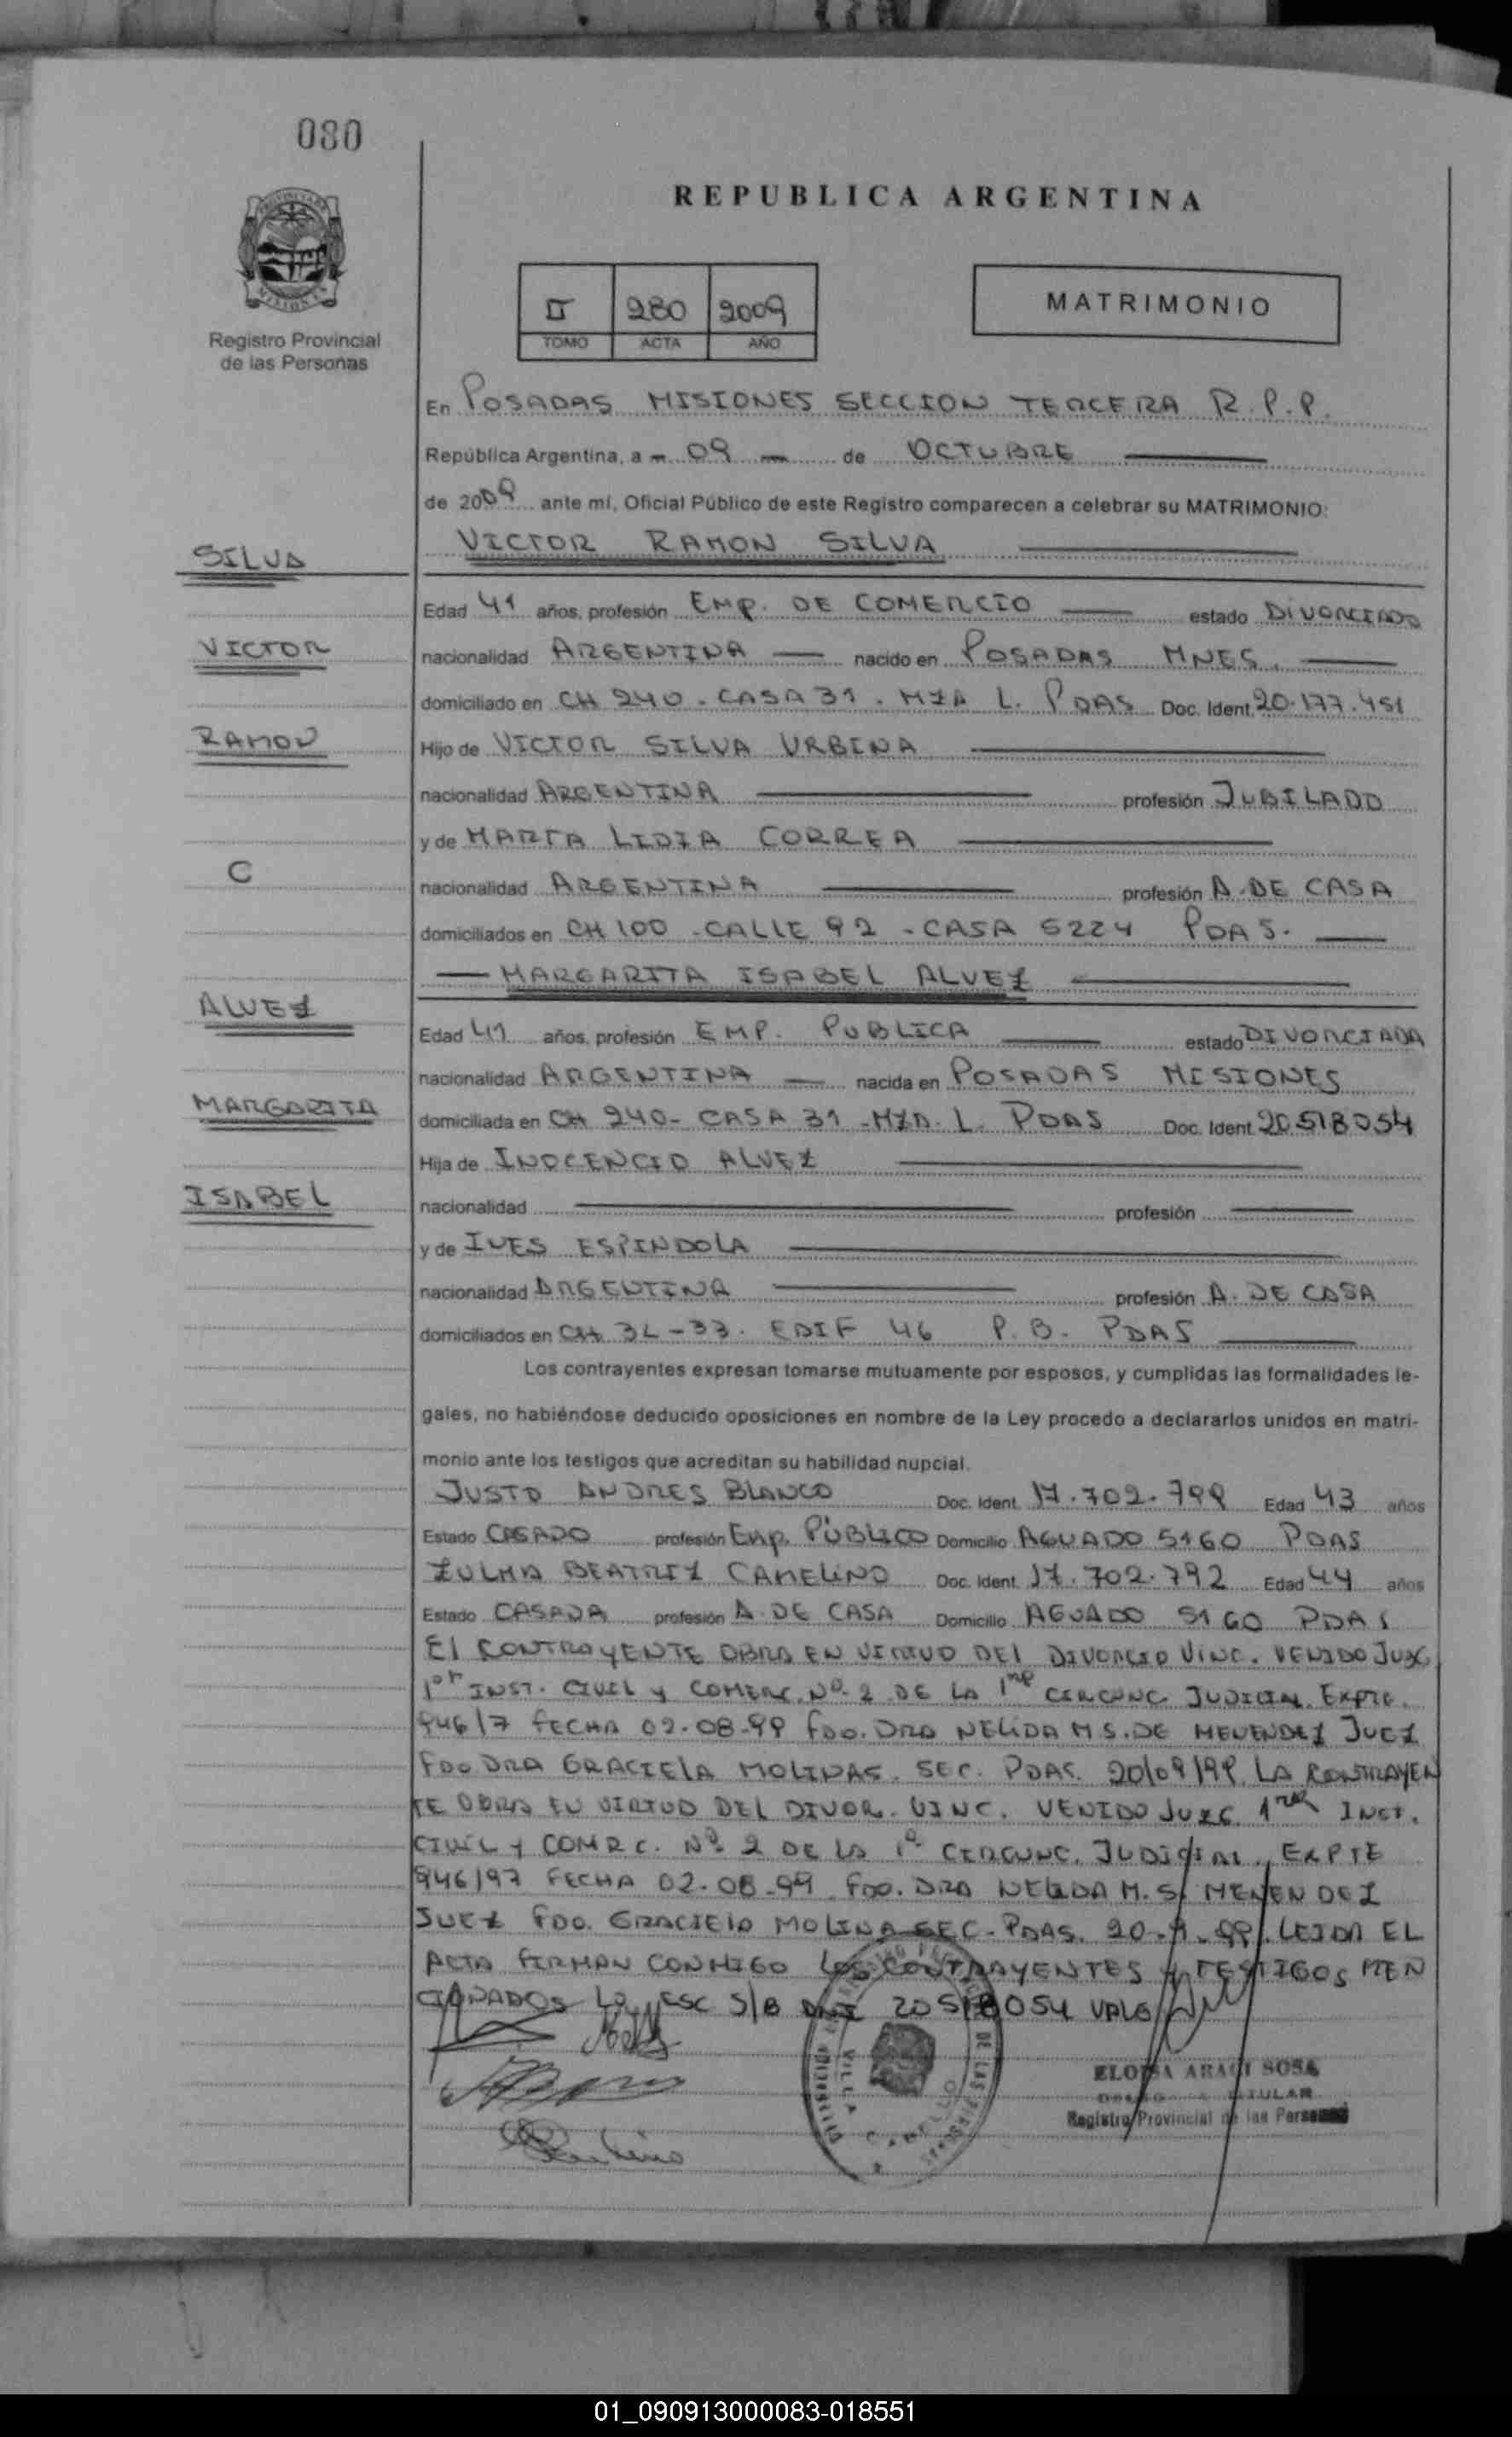 080
REPUBLICA ARGENTINA
PROVINCIA DE
MISIONES
Registro Provincial
de las Personas
II 280 2009
TOMO ACTA AÑO
MATRIMONIO
En POSADAS MISIONES SECCION TERCERA R.P.P.
República Argentina, a - 09 - de OCTUBRE
de 2009 ante mí, Oficial Público de este Registro comparecen a celebrar su MATRIMONIO:
VICTOR RAMON SILVA
SILVA
Edad 41 años, profesión EMP. DE COMERCIO estado DIVORCIADO
VICTOR
nacionalidad ARGENTINA nacido en POSADAS MNES.
domiciliado en CH 240 - CASA 31 - MZA L. PDAS Doc. Ident. 20.177.451
RAMON
Hijo de VICTOR SILVA URBINA
nacionalidad ARGENTINA profesión JUBILADO
y de MARTA LIDIA CORREA
C
nacionalidad ARGENTINA profesión A. DE CASA
domiciliados en CH 100 - CALLE 92 - CASA 5224 PDAS.
MARGARITA ISABEL ALVEZ
ALVEZ
Edad 41 años, profesión EMP. PUBLICA estado DIVORCIADA
nacionalidad ARGENTINA nacida en POSADAS MISIONES
MARGARITA
domiciliada en CH 240 - CASA 31 - MZA. L. PDAS Doc. Ident. 20.518054
Hija de INOCENCIO ALVEZ
ISABEL
nacionalidad profesión
y de INES ESPINDOLA
nacionalidad ARGENTINA profesión A. DE CASA
domiciliados en CH 32-33. EDIF 46 P.B. PDAS
Los contrayentes expresan tomarse mutuamente por esposos, y cumplidas las formalidades le-
gales, no habiéndose deducido oposiciones en nombre de la Ley procedo a declararlos unidos en matri-
monio ante los testigos que acreditan su habilidad nupcial.
JUSTO ANDRES BLANCO Doc. Ident. 17.702.799 Edad 43 años
Estado CASADO profesión Emp. PÚBLICO Domicilio AGUADO 5160 PDAS
ZULMA BEATRIZ CAMELINO Doc. Ident. 17.702.792 Edad 44 años
Estado CASADA profesión A. DE CASA Domicilio AGUADO 5160 PDAS
El CONTRAYENTE OBRA EN VIRTUD DEL DIVORCIO VINC. VENIDO JUZG
1er INST. CIVIL y COMERC. Nº 2 DE LA 1ra CIRCUNC. JUDICIAL. EXPTE.
946/7 FECHA 02-08-99 FDO. DRA NELIDA M S. DE MENENDEZ JUEZ
FDO DRA GRACIELA MOLINAS. SEC. PDAS. 20/09/99. LA CONTRAYEN
TE OBRA EN VIRTUD DEL DIVOR. VINC. VENIDO JUZG. 1ra INST.
CIVIL Y COMRC. Nº 2 DE LA 1ª CIRCUNC. JUDICIAL. EXPTE
946/97 FECHA 02-08-99 FDO. DRA NELIDA M. S. MENENDEZ
JUEZ FDO. GRACIELA MOLINA SEC. PDAS. 20-9-99. LEIDA EL
ACTA FIRMAN CONMIGO LOS CONTRAYENTES y TESTIGOS MEN
CIONADOS LO ESC S/B DNI 20518054 VALE
VILLA CABELLO
DE LAS PERSONAS
ELOISA ARACI SOSA
TITULAR
Registro Provincial de las Personas
01_090913000083-018551